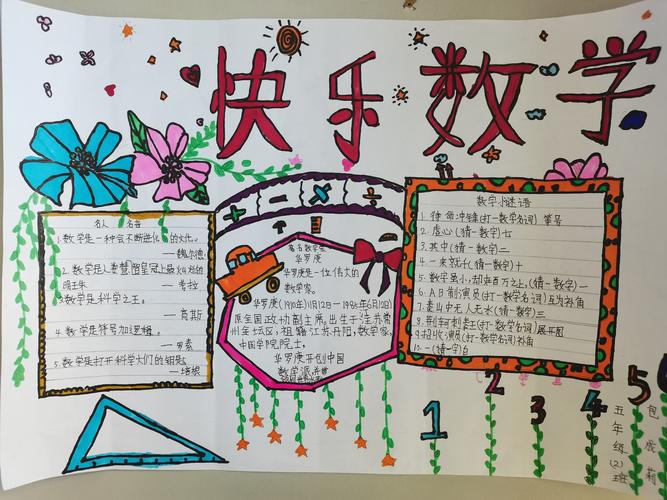 快乐数学
名人 名言
1.数学是一种会不断进化的文化。
—魏尔德
2.数学是人类智慧皇冠上最灿烂的
明王朱 —考拉
3数学是科学之王。
—高斯
4.数学是符号加逻辑。
—罗素
5.数学是打开科学大们的钥匙。
—培根
+ − × ÷
著名数学家
华罗庚
华罗庚是一位伟大的
数学家。
华罗庚(1910年11月12日—1985年6月12日)
原全国政协副主席。出生于江苏常
州金坛区,祖籍江苏丹阳,数学家,
中国科学院院士。
华罗庚开创中国
数学派并带
数学小谜语
1.待命冲锋(打一数学名词)等号
2.虚心(猜一数字)七
3.其中(猜一数字)二
4.一来就千(猜一数字)十
5.数字虽小,却在百万之上,(猜一数字)一
6.AB制演员(打一数学名词)互为补角
7.泰山中无人无水(猜一数字)三
8.荆轲刺秦王(打一数学名词)展开图
9.招收演员(打一数学名词)补角
10.一(猜一字)白
1 2 3 4 5
五年级(2)班
包成莉